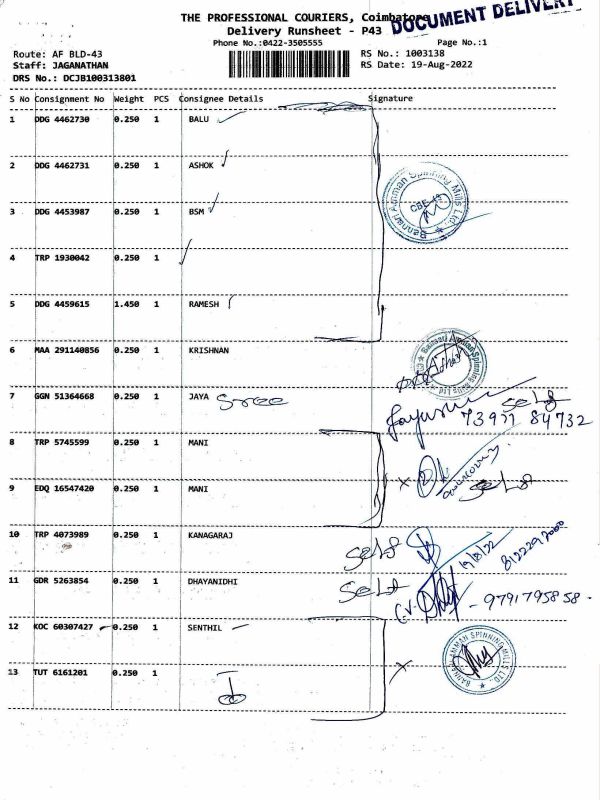 THE PROFESSIONAL COURIERS, Coimbatore
DOCUMENT DELIVERY
Delivery Runsheet - P43
Phone No.:0422-3505555
Page No.:1
Route: AF BLD-43
RS No.: 1003138
Staff: JAGANATHAN
RS Date: 19-Aug-2022
DRS No.: DCJB100313801
S No Consignment No Weight PCS Consignee Details Signature
1 DDG 4462730 0.250 1 BALU
2 DDG 4462731 0.250 1 ASHOK
Bannari Amman Spinning Mills Ltd.,
CBE-43
3 DDG 4453987 0.250 1 BSM
4 TRP 1930042 0.250 1
5 DDG 4459615 1.450 1 RAMESH
6 MAA 291140856 0.250 1 KRISHNAN
Bannari Amman Spinning Mills Ltd
7 GGN 51364668 0.250 1 JAYA Sree
Self
73977 84732
8 TRP 5745599 0.250 1 MANI
9 EDQ 16547420 0.250 1 MANI
Self
10 TRP 4073989 0.250 1 KANAGARAJ
Self
19/8/22
11 GDR 5263854 0.250 1 DHAYANIDHI
Self
9791795858
12 KOC 60307427 0.250 1 SENTHIL
BANNARI AMMAN SPINNING MILLS LTD.,
13 TUT 6161201 0.250 1